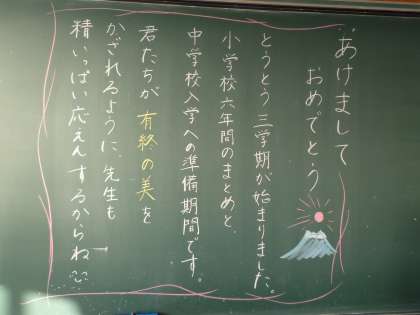 あけまして
おめでとう
とうとう三学期が始まりました。
小学校六年間のまとめと、
中学校入学への準備期間です。
君たちが有終の美を
かざれるように、先生も
精いっぱい応えんするからね